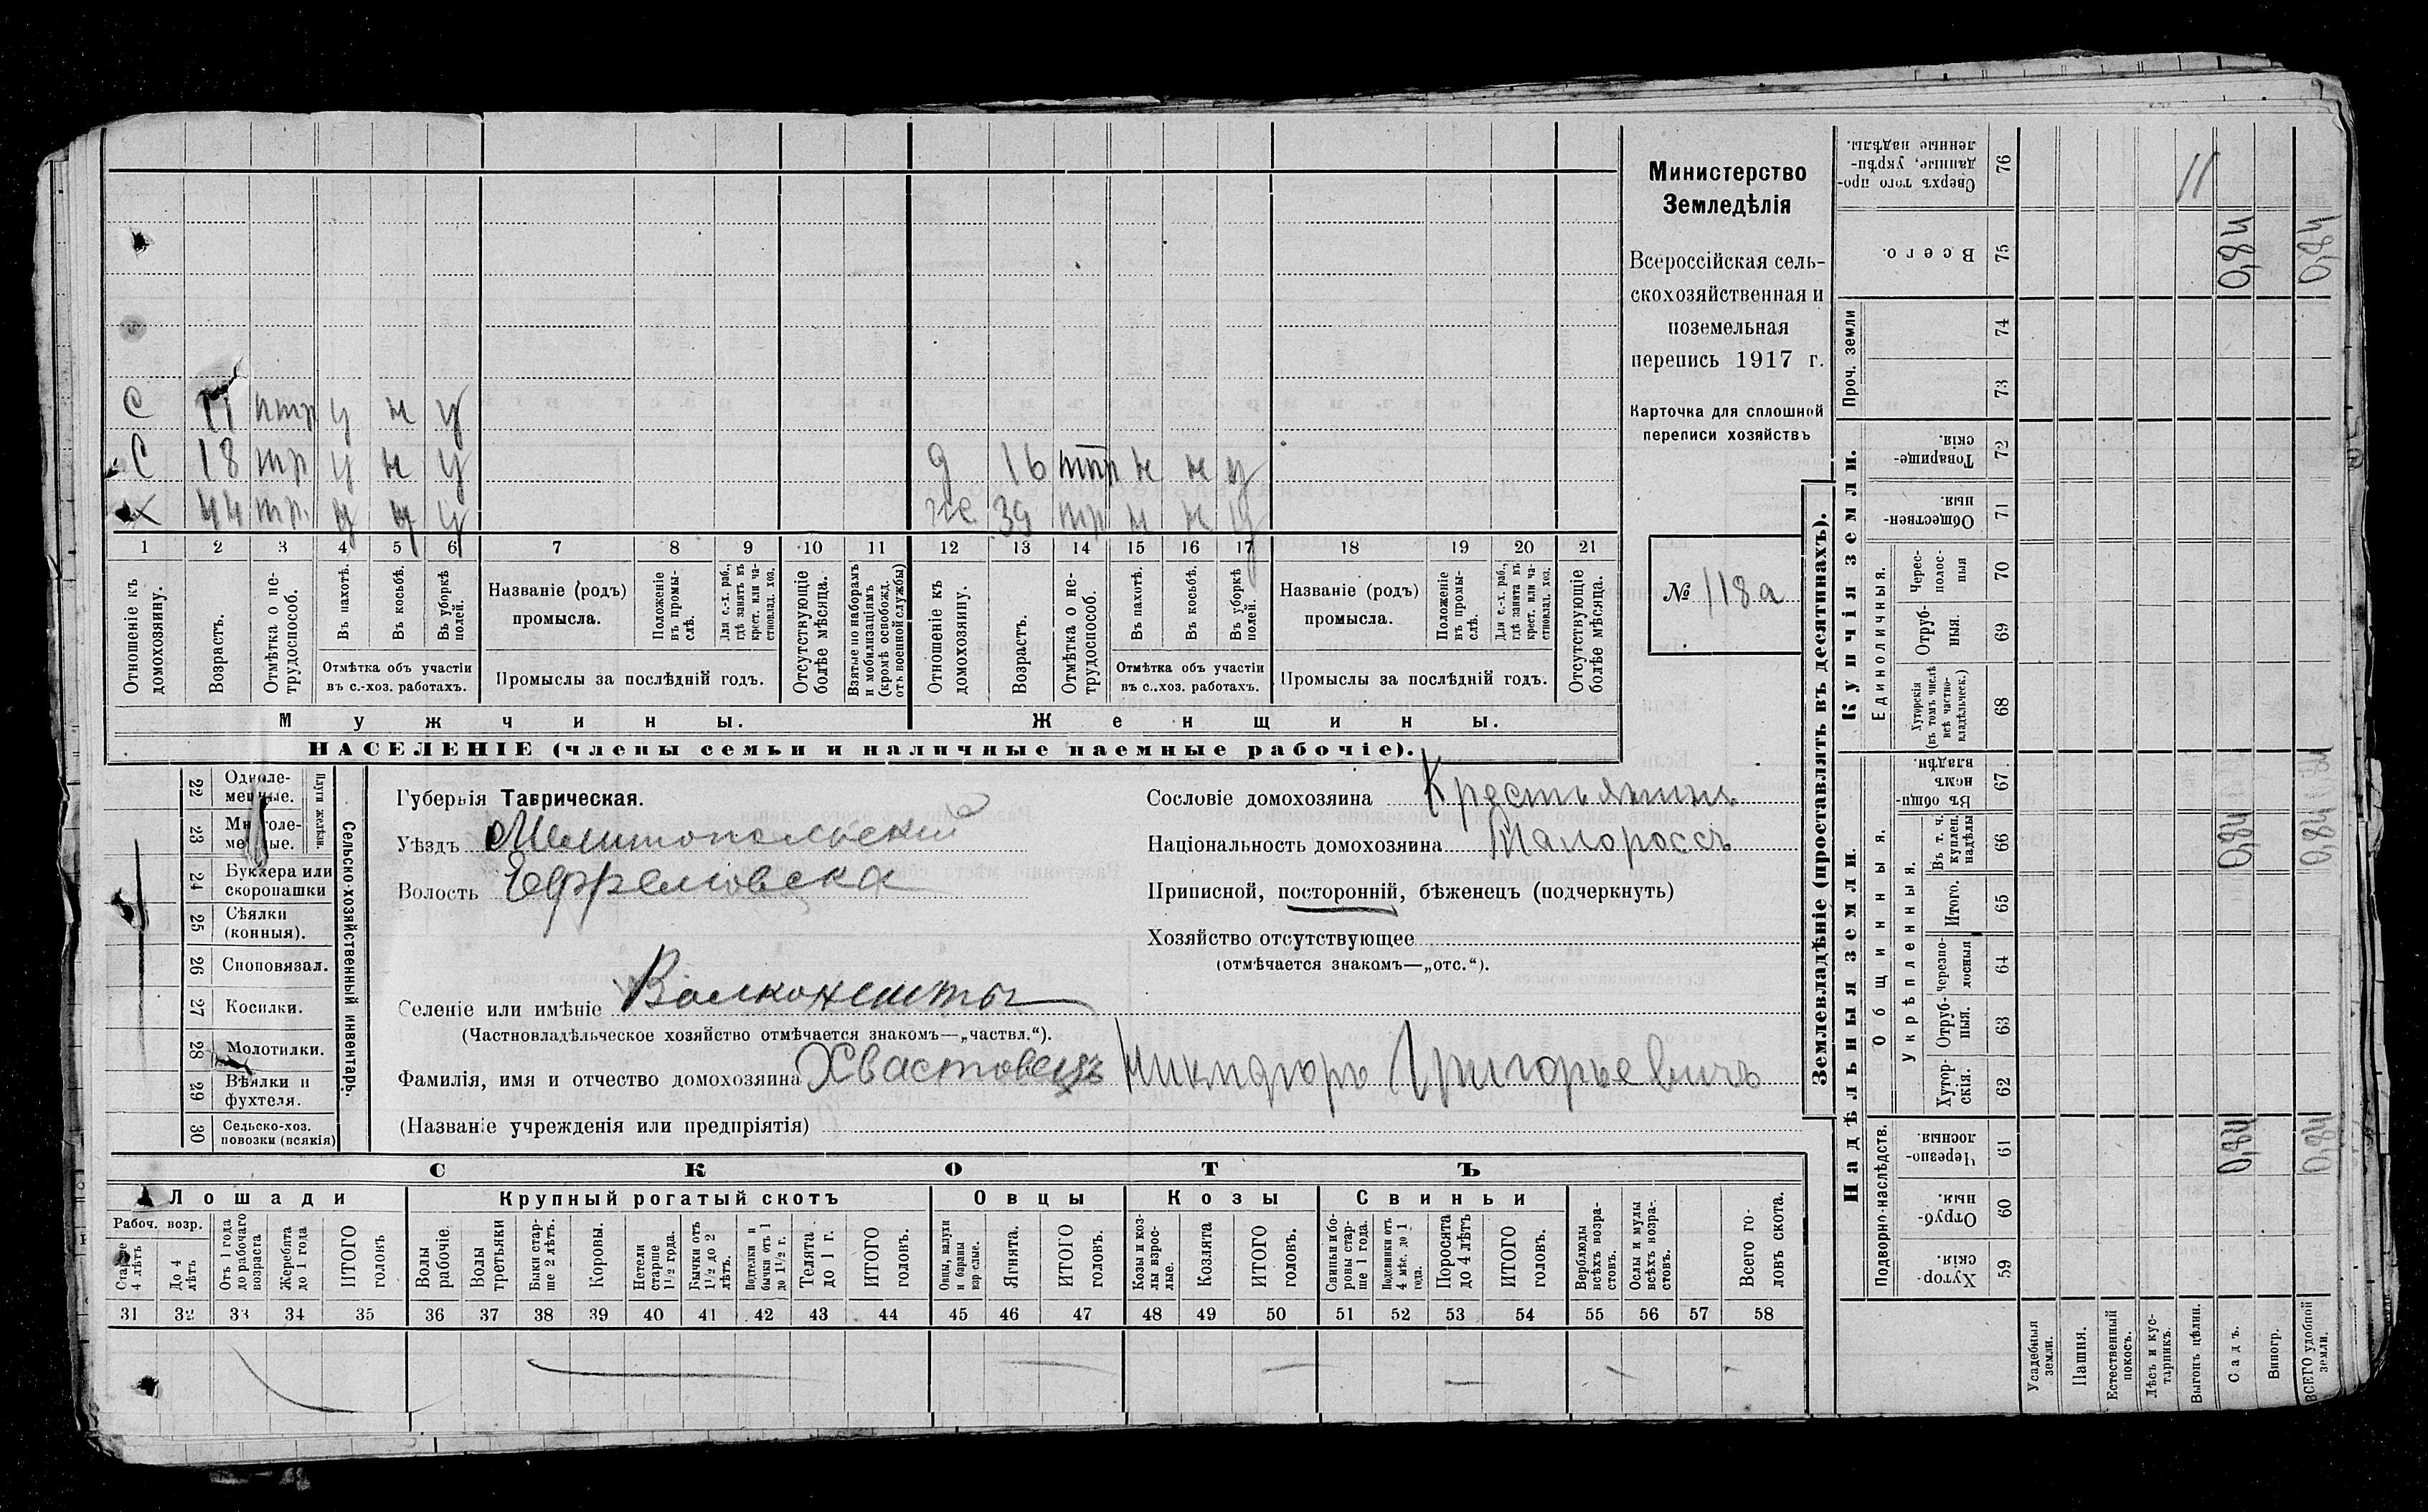 Министерство
Земледѣлія
Всероссійская сель-
скохозяйственная и
поземельная
перепись 1917 г.
Карточка для сплошной
переписи хозяйствъ
№ 118а
С 11 птр у н у
С 18 тр у н у
д 16 птр н н у
х 44 тр. у у у
же 39 тр н н у
1 2 3 4 5 6 7 8 9 10 11 12 13 14 15 16 17 18 19 20 21
Отношеніе къ домохозяину.
Возрастъ.
Отмѣтка о не-трудоспособ.
Въ пахотѣ.
Въ косьбѣ.
Въ уборкѣ полей.
Отмѣтка объ участіи
въ с.-хоз. работахъ.
Названіе (родъ)
промысла.
Положеніе въ промы-слѣ.
Для с.-х. раб., гдѣ занятъ въ крест. или ча-стновлад. хоз.
Промыслы за послѣдній годъ.
Отсутствующіе болѣе мѣсяца.
Взятые по наборамъ и мобилизаціямъ (кромѣ освобожд. отъ военной службы)
Отношеніе къ домохозяину.
Возрастъ.
Отмѣтка о не-трудоспособ.
Въ пахотѣ.
Въ косьбѣ.
Въ уборкѣ полей.
Отмѣтка объ участіи
въ с.-хоз. работахъ.
Названіе (родъ)
промысла.
Положеніе въ промы-слѣ.
Для с.-х. раб., гдѣ занята въ крест. или ча-стновлад. хоз.
Промыслы за послѣдній годъ.
Отсутствующіе болѣе мѣсяца.
Мужчины. Женщины.
НАСЕЛЕНІЕ (члены семьи и наличные наемные рабочіе).
Сельско-хозяйственный инвентарь.
Плуги желѣзн.
22 Одноле-мешные.
23 Многоле-мешные.
24 Буккера или скоропашки
25 Сѣялки (конныя).
26 Сноповязал.
27 Косилки.
28 Молотилки.
29 Вѣялки и фухтеля.
30 Сельско-хоз. повозки (всякія)
Губернія Таврическая.
Уѣздъ Мелитопольскій
Волость Ефремовска
Селеніе или имѣніе
(Частновладѣльческое хозяйство отмѣчается знакомъ—„частвл.“).
Сословіе домохозяина Крестьянинъ
Національность домохозяина Малороссъ
Приписной, посторонній, бѣженецъ (подчеркнуть)
Хозяйство отсутствующее
(отмѣчается знакомъ—„отс.“).
Фамилія, имя и отчество домохозяина Хвастовецъ Никифоръ Григорьевичъ
(Названіе учрежденія или предпріятія)
СКОТЪ
Лошади Крупный рогатый скотъ Овцы Козы Свиньи
Рабоч. возр.
Старше 4 лѣтъ
До 4 лѣтъ
Отъ 1 года до рабочаго возраста
Жеребята до 1 года
ИТОГО головъ
Волы рабочіе.
Волы третьяки
Быки стар-ше 2 лѣтъ.
Коровы.
Нетели старше 1½ года.
Бычки отъ 1½ до 2 лѣтъ.
Подтелки и бычки отъ 1 до 1½ г.
Телята до 1 г.
ИТОГО головъ.
Овцы, валухи и бараны взрослые.
Ягнята.
ИТОГО головъ.
Козы и коз-лы взрос-лые.
Козлята
ИТОГО головъ.
Свиньи и бо-ровы стар-ше 1 года.
Подсвинки отъ 4 мѣс. до 1 года.
Поросята до 4 лѣтъ
ИТОГО головъ.
Верблюды всѣхъ возра-стовъ.
Ослы и мулы всѣхъ возра-стовъ.
Всего го-ловъ скота.
31 32 33 34 35 36 37 38 39 40 41 42 43 44 45 46 47 48 49 50 51 52 53 54 55 56 57 58
Землевладѣніе (проставлять въ десятинахъ).
Надѣльныя земли. Купчія земли.
Подворно-наслѣдств.
Общинныя.
Укрѣпленныя.
Единоличныя.
Проч. земли
Сверхъ того про-данные, укрѣп-ленные надѣлы. 76 11
Всего. 75 0,84 0,84
74
73
Товарище-скія. 72
Обществен-ныя. 71
Черес-полос-ныя 70
Отруб-ныя. 69
Хуторскія (въ томъ числѣ всѣ частно-владѣльческ.) 68
Въ общи-номъ владѣн. 67
Въ т. ч. куплен. надѣлы 66 0,84 0,84
Итого. 65
черезпо-лосныя 64
Отруб-ныя. 63
Хутор-скія. 62
Черезпо-лосныя 61 0,84 0,84
Отруб-ныя. 60
Хутор-скія. 59
Усадебныя земли.
Пашня.
Естественный покосъ.
Лѣсъ и кус-тарникъ.
Выгонъ цѣлин.
Садъ.
Виногр.
ВСЕГО удобной земли.